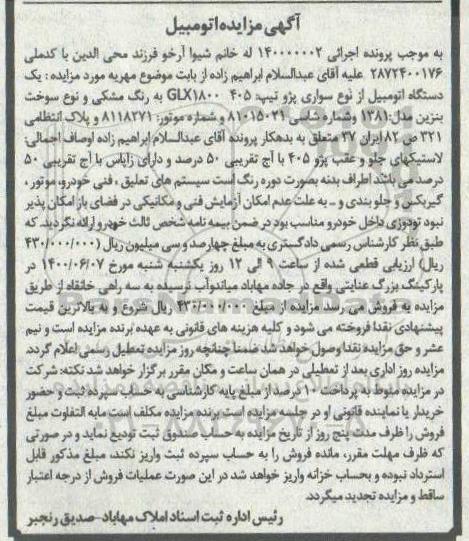 آگهی مزایده اتومبیل
به موجب پرونده اجرائی ۱۴۰۰۰۰۰۰۲ له خانم شیوا آرخو فرزند محی الدین با کدملی
۲۸۷۲۴۰۰۱۷۶ علیه آقای عبدالسلام ابراهیم زاده از بابت موضوع مهریه مورد مزایده : یک
دستگاه اتومبیل از نوع سواری پژو تیپ: ۴۰۵ GLX1800 به رنگ مشکی و نوع سوخت
بنزین مدل:۱۳۸۱ وشماره شاسی ۸۱۰۱۵۰۲۱ و شماره موتور: ۸۱۱۸۲۷۱ و پلاک انتظامی
۳۲۱ ص ۸۲ ایران ۳۷ متعلق به بدهکار پرونده آقای عبدالسلام ابراهیم زاده اوصاف اجمالی:
لاستیکهای جلو و عقب پژو ۴۰۵ با آج تقریبی ۵۰ درصد و دارای زاپاس با آج تقریبی ۵۰
درصد می باشد اطراف بدنه بصورت دوره رنگ است سیستم های تعلیق ، فنی خودرو، موتور ،
گیربکس و جلو بندی و .. به علت عدم امکان آزمایش فنی و مکانیکی در فضای باز امکان پذیر
نبود تودوزی داخل خودرو مناسب بود در ضمن بیمه نامه شخص ثالث خودرو ارائه نگردید. که
طبق نظر کارشناس رسمی دادگستری به مبلغ چهارصد و سی میلیون ریال (۴۳۰/۰۰۰/۰۰۰
ریال) ارزیابی قطعی شده از ساعت ۹ الی ۱۲ روز یکشنبه شنبه مورخ ۱۴۰۰/۰۶/۰۷ در
پارکینگ بزرگ عنایتی واقع در جاده مهاباد میاندوآب نرسیده به سه راهی خانقاه از طریق
مزایده به فروش می رسد مزایده از مبلغ ۴۳۰/۰۰۰/۰۰۰ ریال شروع و به بالاترین قیمت
پیشنهادی نقدا فروخته می شود و کلیه هزینه های قانونی به عهده برنده مزایده است و نیم
عشر و حق مزایده نقدا وصول خواهد شد ضمنا چنانچه روز مزایده تعطیل رسمی اعلام گردد
مزایده روز اداری بعد از تعطیلی در همان ساعت و مکان مقرر برگزار خواهد شد نکته: شرکت
در مزایده منوط به پرداخت ۱۰ درصد از مبلغ پایه کارشناسی به حساب سپرده ثبت و حضور
خریدار یا نماینده قانونی او در جلسه مزایده است برنده مزایده مکلف است مابه التفاوت مبلغ
فروش را ظرف مدت پنج روز از تاریخ مزایده به حساب صندوق ثبت تودیع نماید و در صورتی که
ظرف مهلت مقرر، مانده فروش را به حساب سپرده ثبت واریز نکند، مبلغ مذکور قابل
استرداد نبوده و بحساب خزانه واریز خواهد شد در این صورت عملیات فروش از درجه اعتبار
ساقط و مزایده تجدید میگردد.
رئیس اداره ثبت اسناد املاک مهاباد-صدیق رنجبر